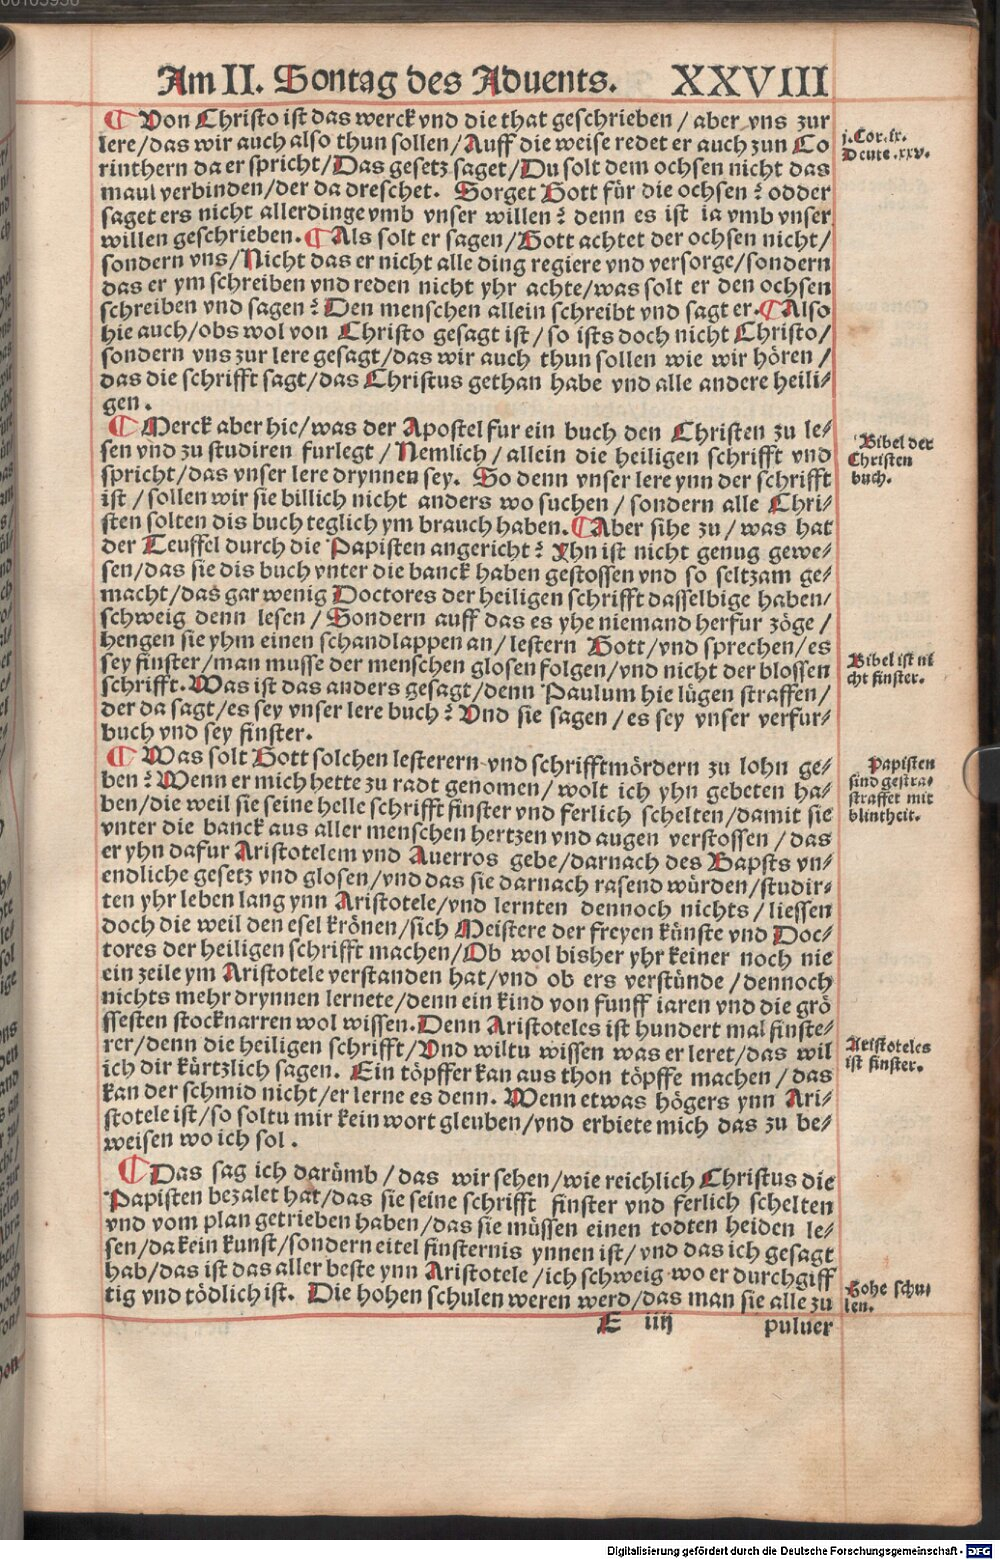 Am II. Sontag des Aduents. XXVIII
¶ Von Christo ist das werck vnd die that geschrieben / aber vns zur
lere/das wir auch also thun sollen/Auff die weise redet er auch zun Co
rinthern da er spricht/Das gesetz saget/Du solt dem ochsen nicht das
maul verbinden/der da dreschet. Sorget Gott für die ochsen? odder
saget ers nicht allerdinge vmb vnser willen? denn es ist ia vmb vnser
willen geschrieben. ¶ Als solt er sagen/Gott achtet der ochsen nicht/
sondern vns/Nicht das er nicht alle ding regiere vnd versorge/sondern
das er ym schreiben vnd reden nicht yhr achte/was solt er den ochsen
schreiben vnd sagen? Den menschen allein schreibt vnd sagt er. ¶ Also
hie auch/obs wol von Christo gesagt ist/so ists doch nicht Christo/
sondern vns zur lere gesagt/das wir auch thun sollen wie wir hören /
das die schrifft sagt/das Christus gethan habe vnd alle andere heili-
gen.
j. Cor. ix.
Deute. xxv.
¶ Merck aber hie/was der Apostel fur ein buch den Christen zu le-
sen vnd zu studiren furlegt /Nemlich/allein die heiligen schrifft vnd
spricht/das vnser lere drynnen sey. So denn vnser lere ynn der schrifft
ist /sollen wir sie billich nicht anders wo suchen /sondern alle Chri-
sten solten dis buch teglich ym brauch haben. ¶ Aber sihe zu/was hat
der Teuffel durch die Papisten angericht? Yhn ist nicht genug gewe-
sen/das sie dis buch vnter die banck haben gestossen vnd so seltzam ge-
macht/das gar wenig Doctores der heiligen schrifft dasselbige haben/
schweig denn lesen /Sondern auff das es yhe niemand herfur zöge /
hengen sie yhm einen schandlappen an/lestern Gott/vnd sprechen/es
sey finster/man musse der menschen glosen folgen/vnd nicht der blossen
schrifft. Was ist das anders gesagt/denn Paulum hie lügen straffen/
der da sagt/es sey vnser lere buch? Vnd sie sagen /es sey vnser verfur-
buch vnd sey finster.
Bibel der
Christen
buch.
Bibel ist ni
cht finster.
¶ Was solt Gott solchen lesterern vnd schrifftmördern zu lohn ge-
ben? Wenn er mich hette zu radt genomen/wolt ich yhn gebeten ha-
ben/die weil sie seine helle schrifft finster vnd ferlich schelten/damit sie
vnter die banck aus aller menschen hertzen vnd augen verstossen /das
er yhn dafur Aristotelem vnd Auerros gebe/darnach des Bapsts vn-
endliche gesetz vnd glosen/vnd das sie darnach rasend würden/studir-
ten yhr leben lang ynn Aristotele/vnd lernten dennoch nichts/liessen
doch die weil den esel krönen/sich Meistere der freyen künste vnd Doc-
tores der heiligen schrifft machen/Ob wol bisher yhr keiner noch nie
ein zeile ym Aristotele verstanden hat/vnd ob ers verstünde /dennoch
nichts mehr drynnen lernete/denn ein kind von funff iaren vnd die grö
ssesten stocknarren wol wissen. Denn Aristoteles ist hundert mal finste-
rer/denn die heiligen schrifft/Vnd wiltu wissen was er leret/das wil
ich dir kürtzlich sagen. Ein töpffer kan aus thon töpffe machen /das
kan der schmid nicht/er lerne es denn. Wenn etwas högers ynn Ari-
stotele ist/so soltu mir kein wort gleuben/vnd erbiete mich das zu be-
weisen wo ich sol.
Papisten
sind gestra-
straffet mit
blintheit.
Aristoteles
ist finster.
¶ Das sag ich darümb /das wir sehen/wie reichlich Christus die
Papisten bezalet hat/das sie seine schrifft finster vnd ferlich schelten
vnd vom plan getrieben haben/das sie müssen einen todten heiden le-
sen/da kein kunst/sondern eitel finsternis ynnen ist/vnd das ich gesagt
hab/das ist das aller beste ynn Aristotele /ich schweig wo er durchgiff
tig vnd tödlich ist. Die hohen schulen weren werd/das man sie alle zu
Hohe schu-
len.
E iiij puluer
Digitalisierung gefördert durch die Deutsche Forschungsgemeinschaft - DFG